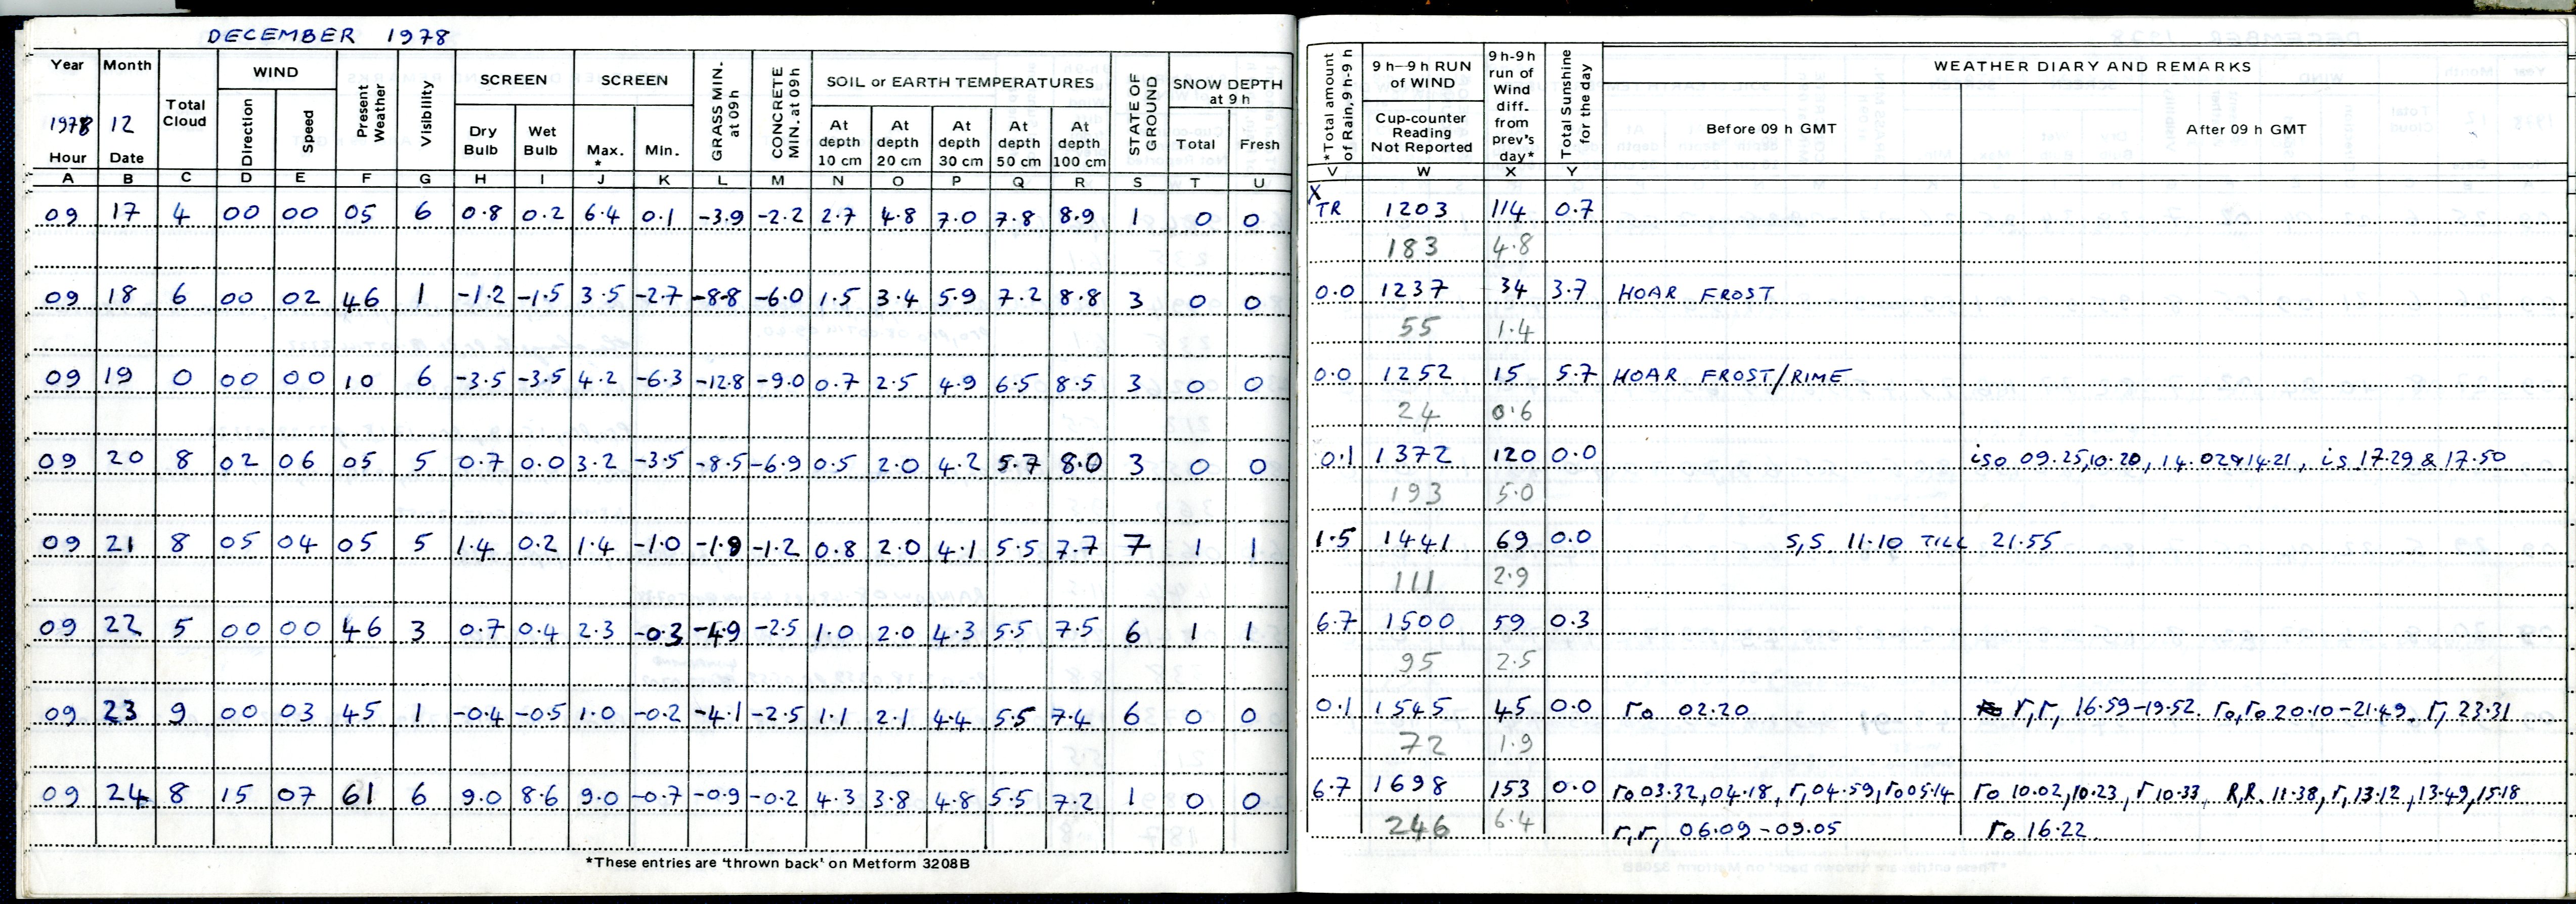 DECEMBER 1978
Year Month Total Cloud WIND Present Weather Visibility SCREEN SCREEN GRASS MIN. at 09h CONCRETE MIN. at 09h SOIL or EARTH TEMPERATURES STATE OF GROUND SNOW DEPTH at 9 h *Total amount of Rain, 9h-9h 9 h–9 h RUN of WIND 9h-9h run of Wind diff. from prev's day* Total Sunshine for the day WEATHER DIARY AND REMARKS
1978 12 Direction Speed Dry Bulb Wet Bulb Max. * Min. At depth 10 cm At depth 20 cm At depth 30 cm At depth 50 cm At depth 100 cm Total Fresh Cup-counter Reading Not Reported Before 09 h GMT After 09 h GMT
Hour Date
A B C D E F G H I J K L M N O P Q R S T U V W X Y
X
09 17 4 00 00 05 6 0.8 0.2 6.4 0.1 -3.9 -2.2 2.7 4.8 7.0 7.8 8.9 1 0 0 TR 1203 114 0.7
183 4.8
09 18 6 00 02 46 1 -1.2 -1.5 3.5 -2.7 -8.8 -6.0 1.5 3.4 5.9 7.2 8.8 3 0 0 0.0 1237 34 3.7 HOAR FROST
55 1.4
09 19 0 00 00 10 6 -3.5 -3.5 4.2 -6.3 -12.8 -9.0 0.7 2.5 4.9 6.5 8.5 3 0 0 0.0 1252 15 5.7 HOAR FROST/RIME
24 0.6
09 20 8 02 06 05 5 0.7 0.0 3.2 -3.5 -8.5 -6.9 0.5 2.0 4.2 5.7 8.0 3 0 0 0.1 1372 120 0.0 iso 09.25,10.20, 14.02&14.21, is 17.29 & 17.50
193 5.0
09 21 8 05 04 05 5 1.4 0.2 1.4 -1.0 -1.9 -1.2 0.8 2.0 4.1 5.5 7.7 7 1 1 1.5 1441 69 0.0 S,S 11.10 TILL 21.55
111 2.9
09 22 5 00 00 46 3 0.7 0.4 2.3 -0.3 -4.9 -2.5 1.0 2.0 4.3 5.5 7.5 6 1 1 6.7 1500 59 0.3
95 2.5
09 23 9 00 03 45 1 -0.4 -0.5 1.0 -0.2 -4.1 -2.5 1.1 2.1 4.4 5.5 7.4 6 0 0 0.1 1545 45 0.0 ro 02.20 r,r, 16.59-19.52. ro,ro 20.10-21.49. r, 23.31
72 1.9
09 24 8 15 07 61 6 9.0 8.6 9.0 -0.7 -0.9 -0.2 4.3 3.8 4.8 5.5 7.2 1 0 0 6.7 1698 153 0.0 ro 03.32, 04.18, r, 04.59, ro 05.14 ro 10.02, 10.23, r 10.33, R,R. 11.38, r, 13.12, 13.49, 15.18
246 6.4 r,r, 06.09-09.05 ro 16.22
*These entries are 'thrown back' on Metform 3208B